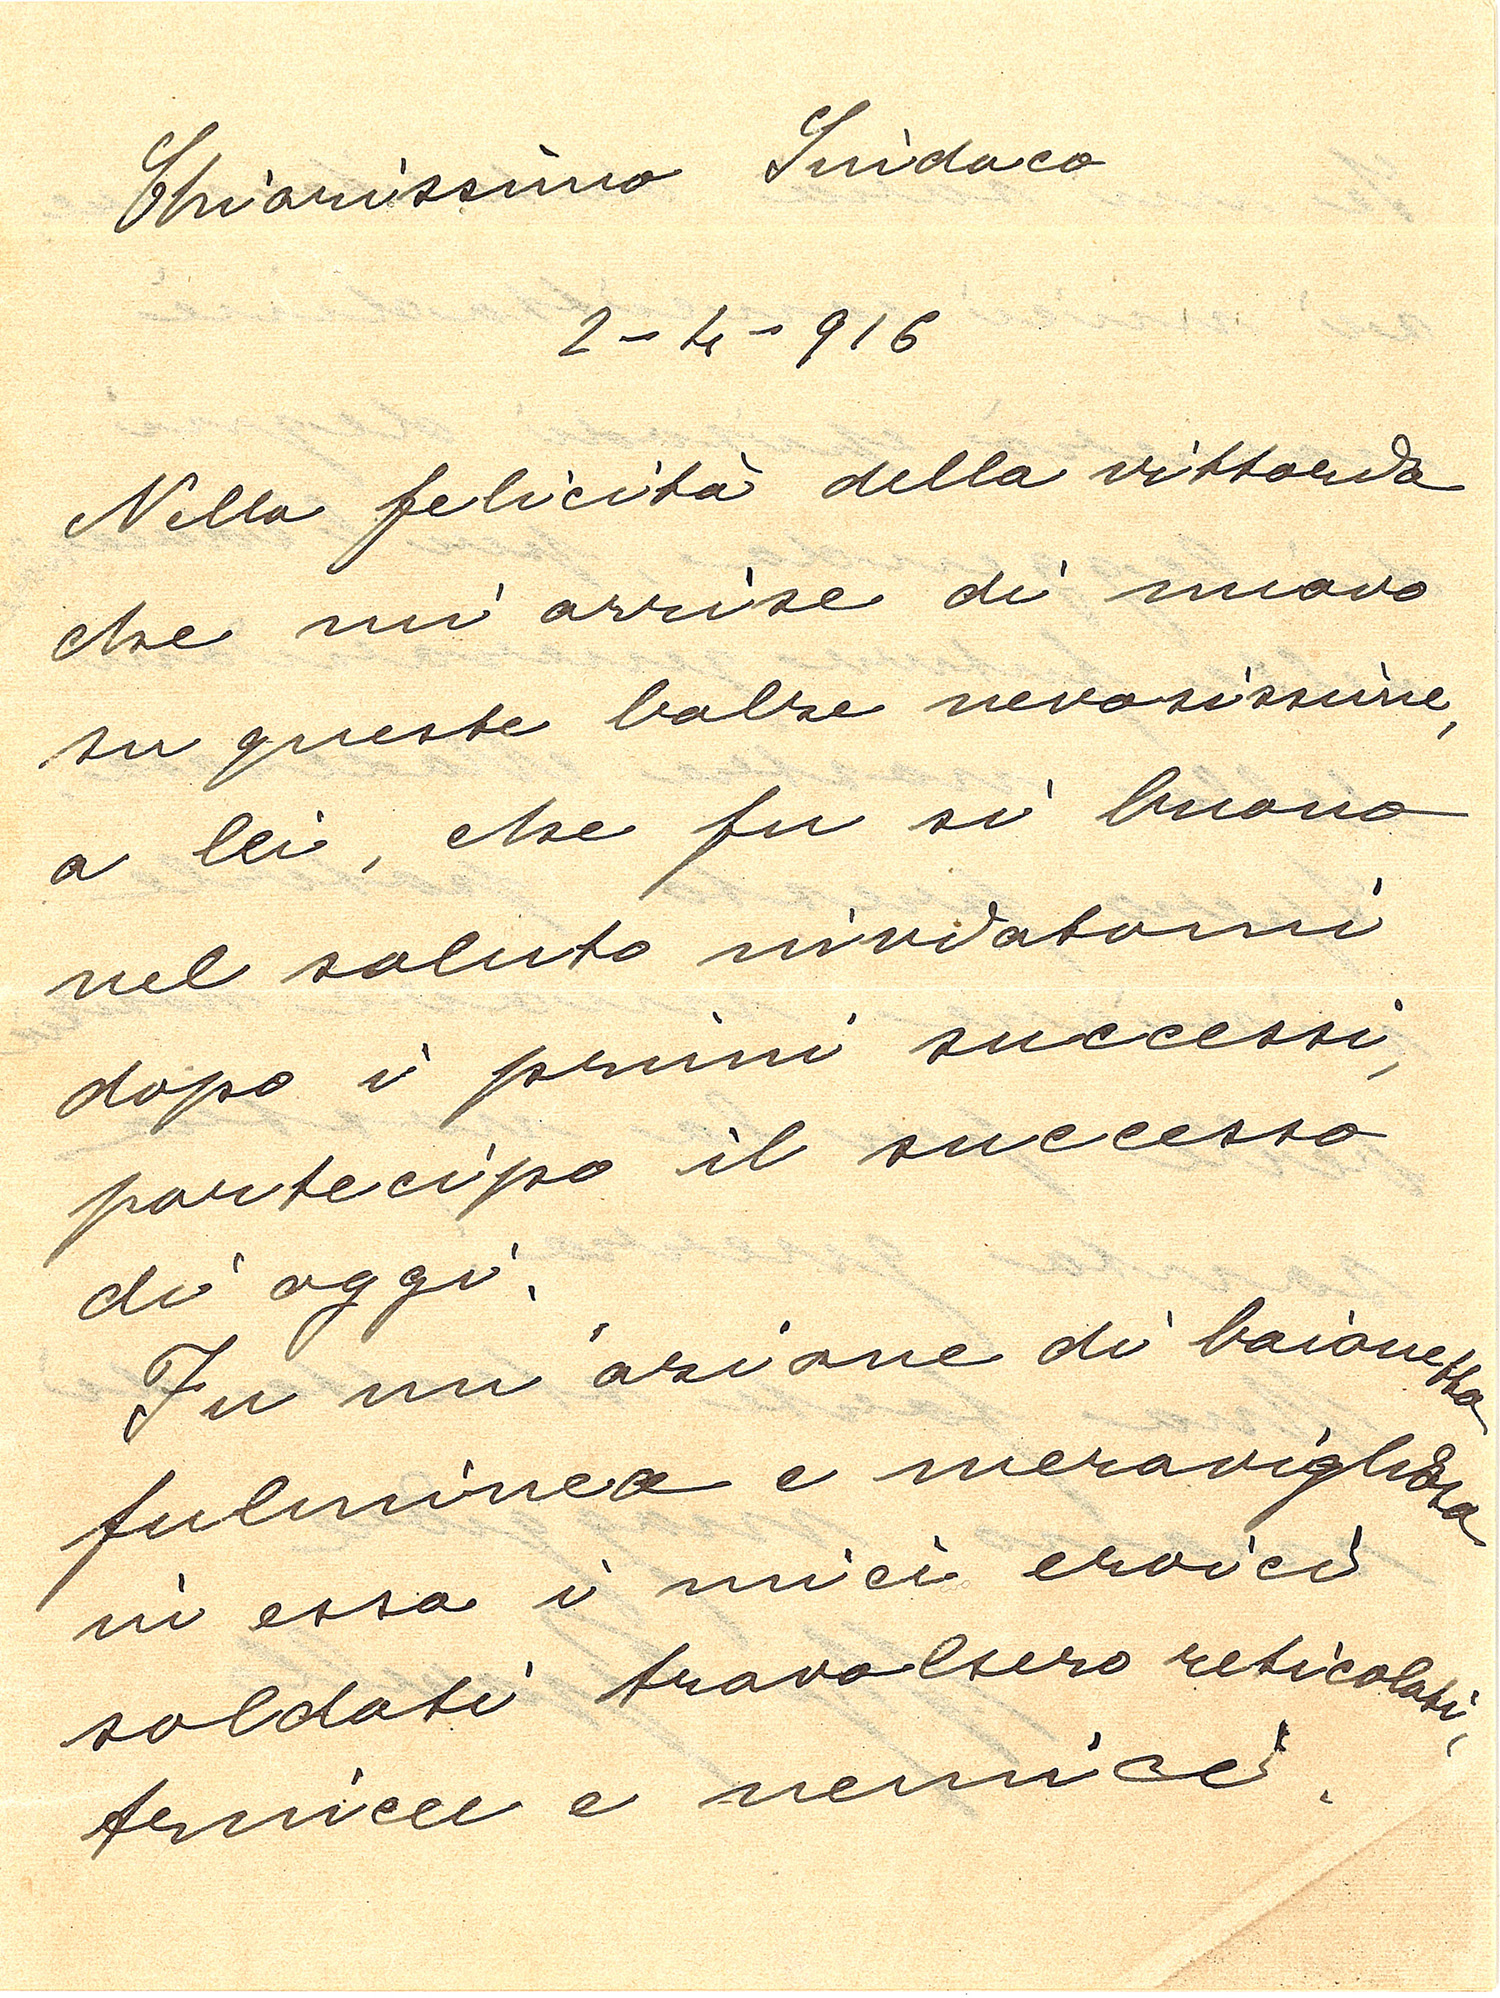 Chiarissimo Sindaco
2-4-916
Nella felicità della vittoria
che mi arrise di nuovo
su queste balze nevosissime,
a lei, che fu sì buono
nel saluto inviatomi
dopo i primi successi,
partecipo il successo
di oggi.
Fu un'azione di baionetta
fulminea e meravigliosa
in essa i miei eroici
soldati travolsero reticolati,
trincee e nemici.